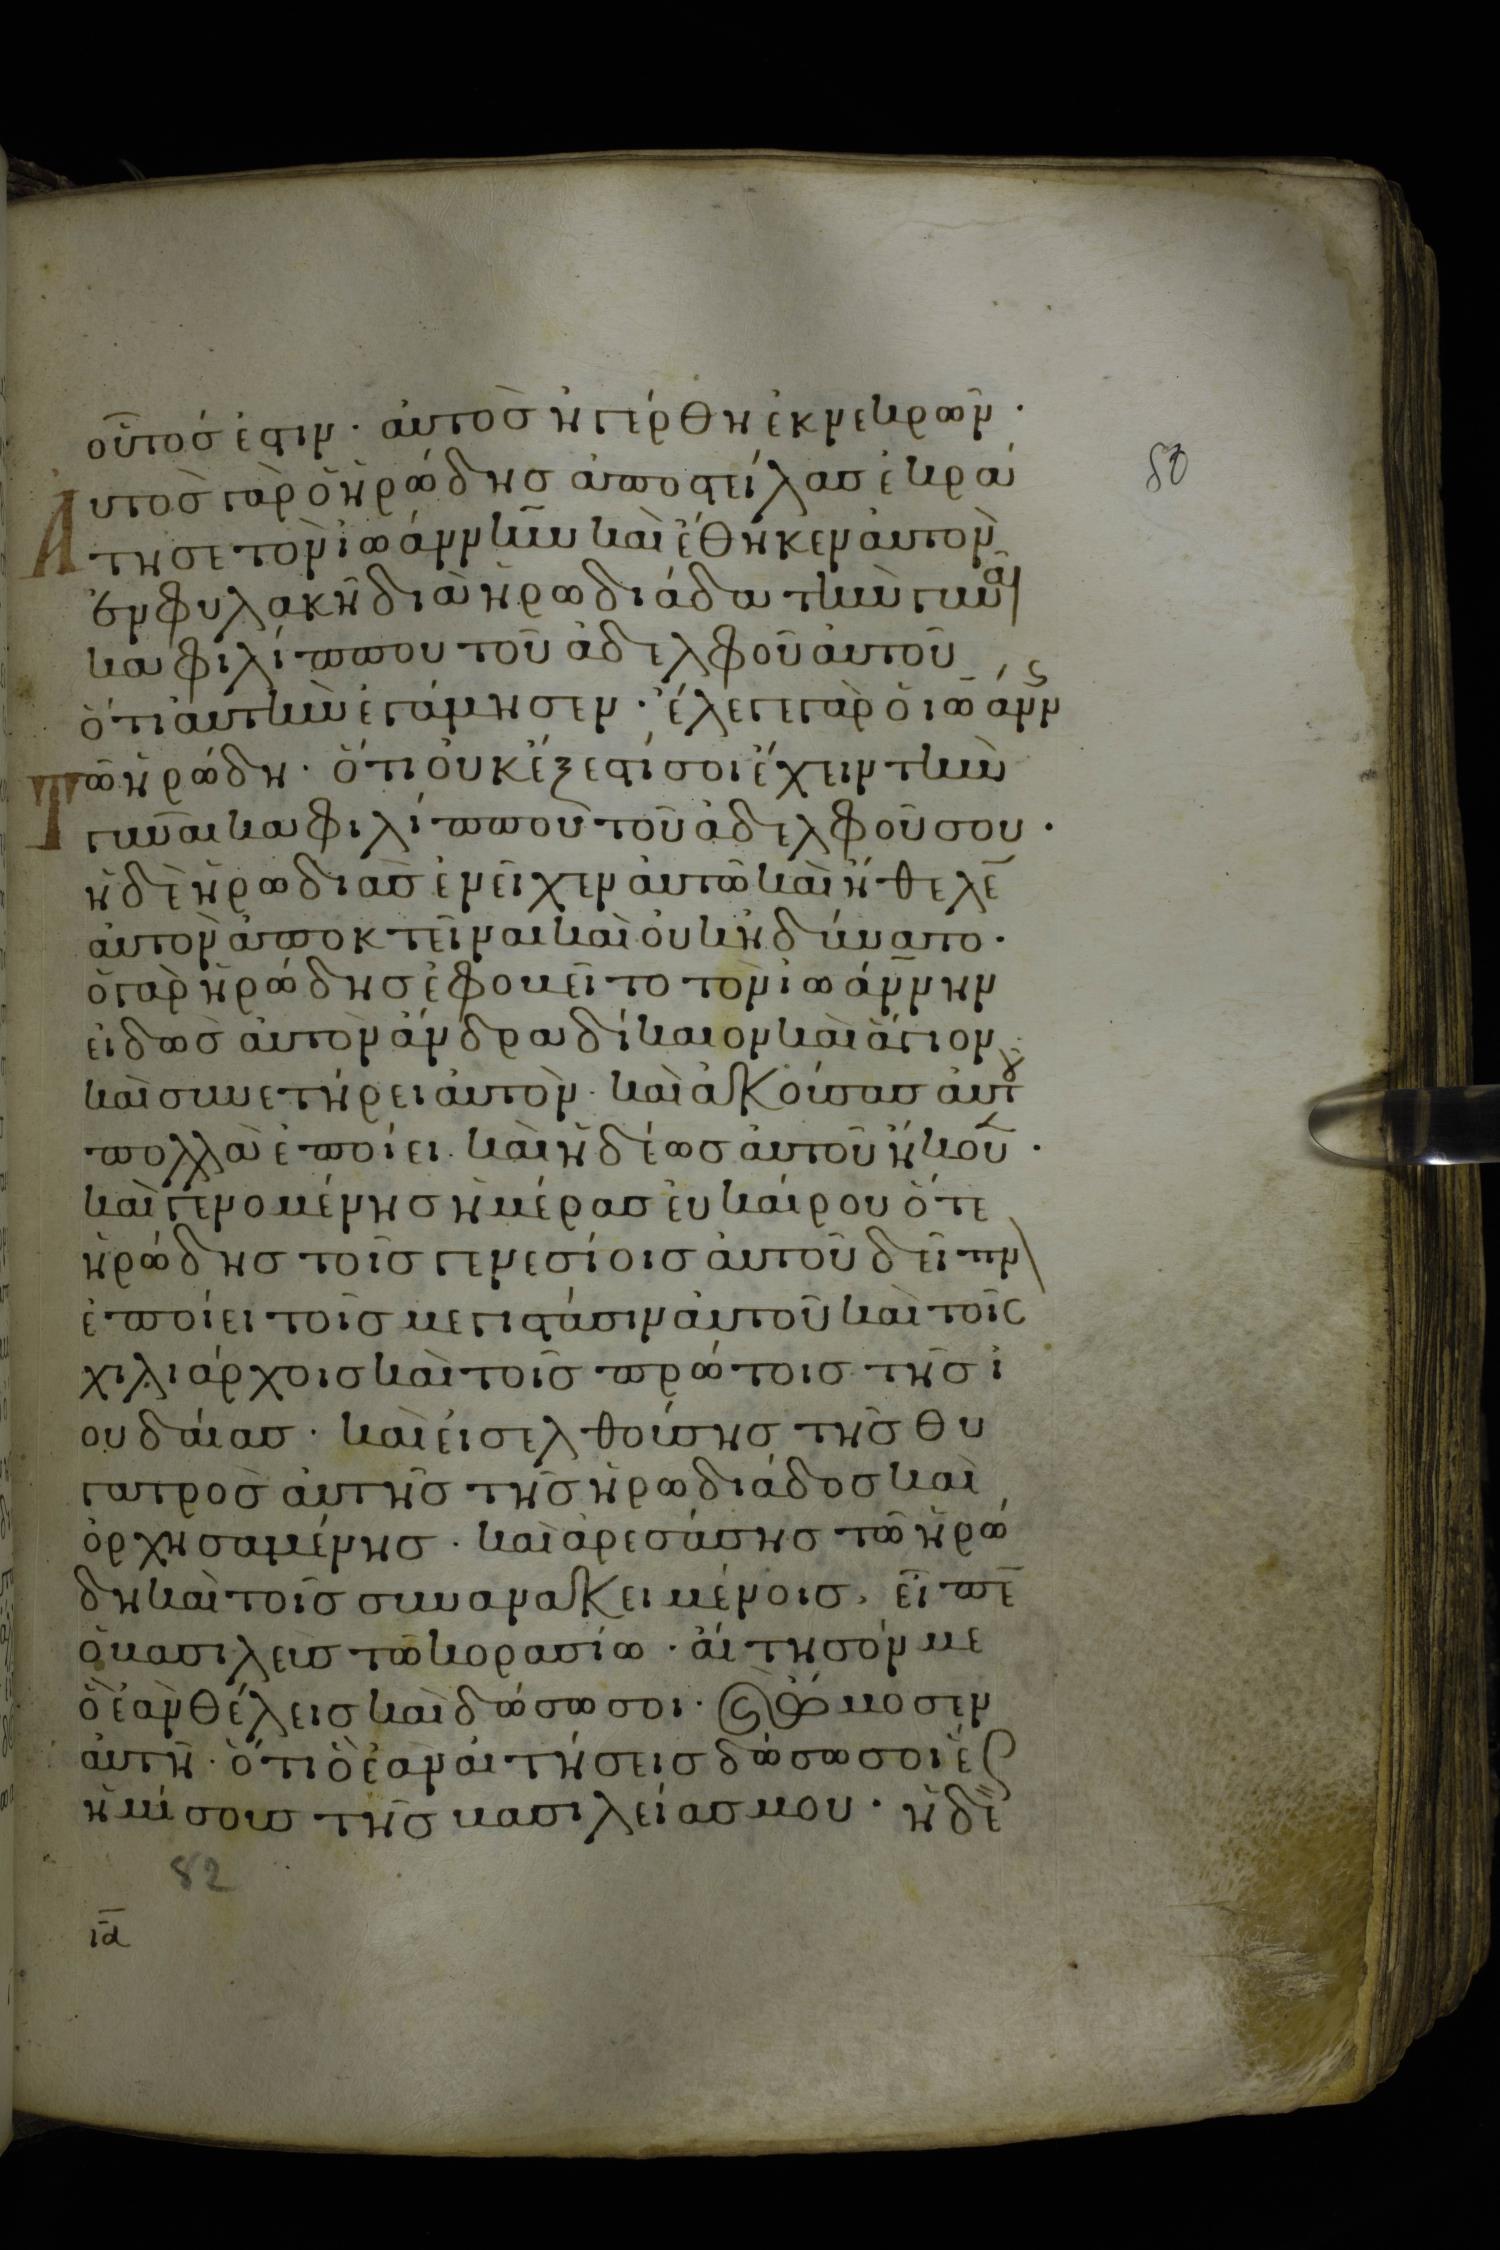 οὗτός ἐστιν· ἀυτὸς ἠγέρθη ἐκ νεκρῶν·
Αυτὸς γὰρ ὁ ἡρώδης ἀποστείλας ἐκρά
τησε τὸν ἰωάννην καὶ ἔθηκεν ἀυτὸν
ἐν φυλακῆ διὰ ἡρωδιάδα τὴν γυναῖ
κα φιλίππου τοῦ ἀδελφοῦ ἀυτοῦ
ὅτι ἀυτὴν ἐγάμησεν· ἔλεγε γὰρ ὁ ἰωάννης
Τῶ ἡρώδη· ὅτι ὀυκ ἔξεστί σοι ἔχειν τὴν
γυναῖκα φιλίππου τοῦ ἀδελφοῦ σου·
ἡ δὲ ἡρωδιὰς ἐνεῖχεν ἀυτῶ καὶ ἤθελε̅
ἀυτὸν ἀποκτεῖναι καὶ ὀυκ ἠδύνατο·
ὁ γὰρ ἡρώδης ἐφοβεῖτο τὸν ἰωάννην
ειδὼς ἀυτὸν ἄνδρα δίκαιον καὶ ἅγιον
καὶ συνετήρει ἀυτὸν· καὶ ἀκούσας ἀυτου
πολλὰ ἐποίει· καὶ ἡδέως ἀυτοῦ ἤκουε·
καὶ γενομένης ἡμέρας ἐυκαίρου ὅτε
ἡρώδης τοῖς γενεσίοις ἀυτοῦ δεῖπν
ἐποίει τοῖς μεγιστάσιν ἀυτοῦ καὶ τοῖς
χιλιάρχοις καὶ τοῖς πρώτοις τῆς ἰ
ουδαίας· καὶ εἰσελθούσης τῆς θυ
γατρὸς ἀυτῆς τῆς ἡρωδιάδος καὶ
ὀρχησαμένης· καὶ ἀρεσάσης τῶ ἡρώ
δη καὶ τοῖς συνανακειμένοις, εἶπε̅
ὁ βασιλεὺς τῶ κορασίω· ἄιτησόν με
ὃ ἐὰν θέλεις καὶ δώσω σοι· καὶ ὤμοσεν
ἀυτῆ· ὅτι ὃ ἐὰν ἀιτήσεις δώσω σοι ἕως
ἡμίσους τῆς βασιλείας μου· ἡ δὲ
80
82
ια̅